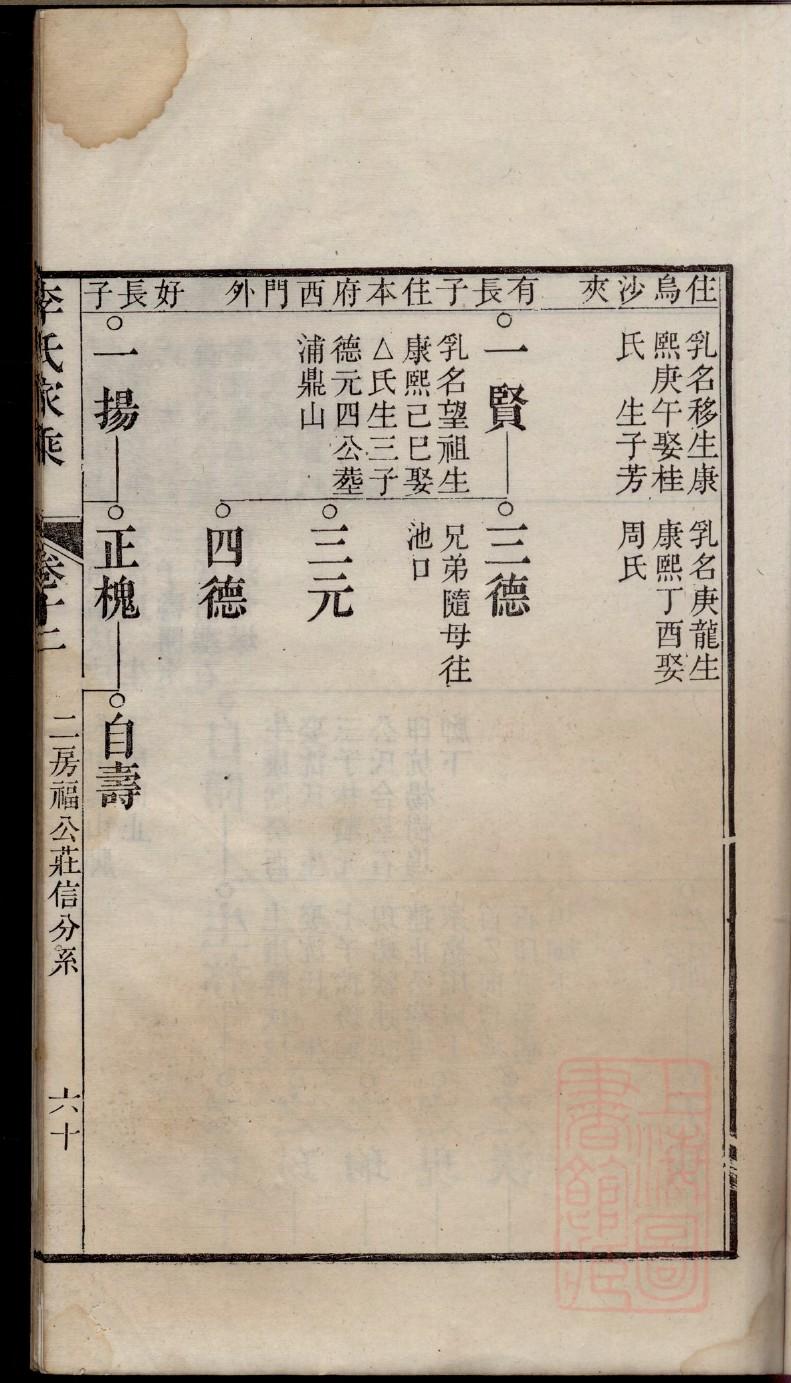 住烏沙夾
乳名移生康
熙庚午娶桂
氏　生子芳
乳名庚龍生
康熙丁酉娶
周氏
有長子住本府西門外
一賢
乳名望祖生
康熙己巳娶
△氏生三子
德元四公塟
浦鼎山
三德
兄弟隨母往
池口
三元
四德
好長子
一揚
正槐
自壽
李氏家乘
卷十二
二房福公莊信分系
六十
上海圖書館藏